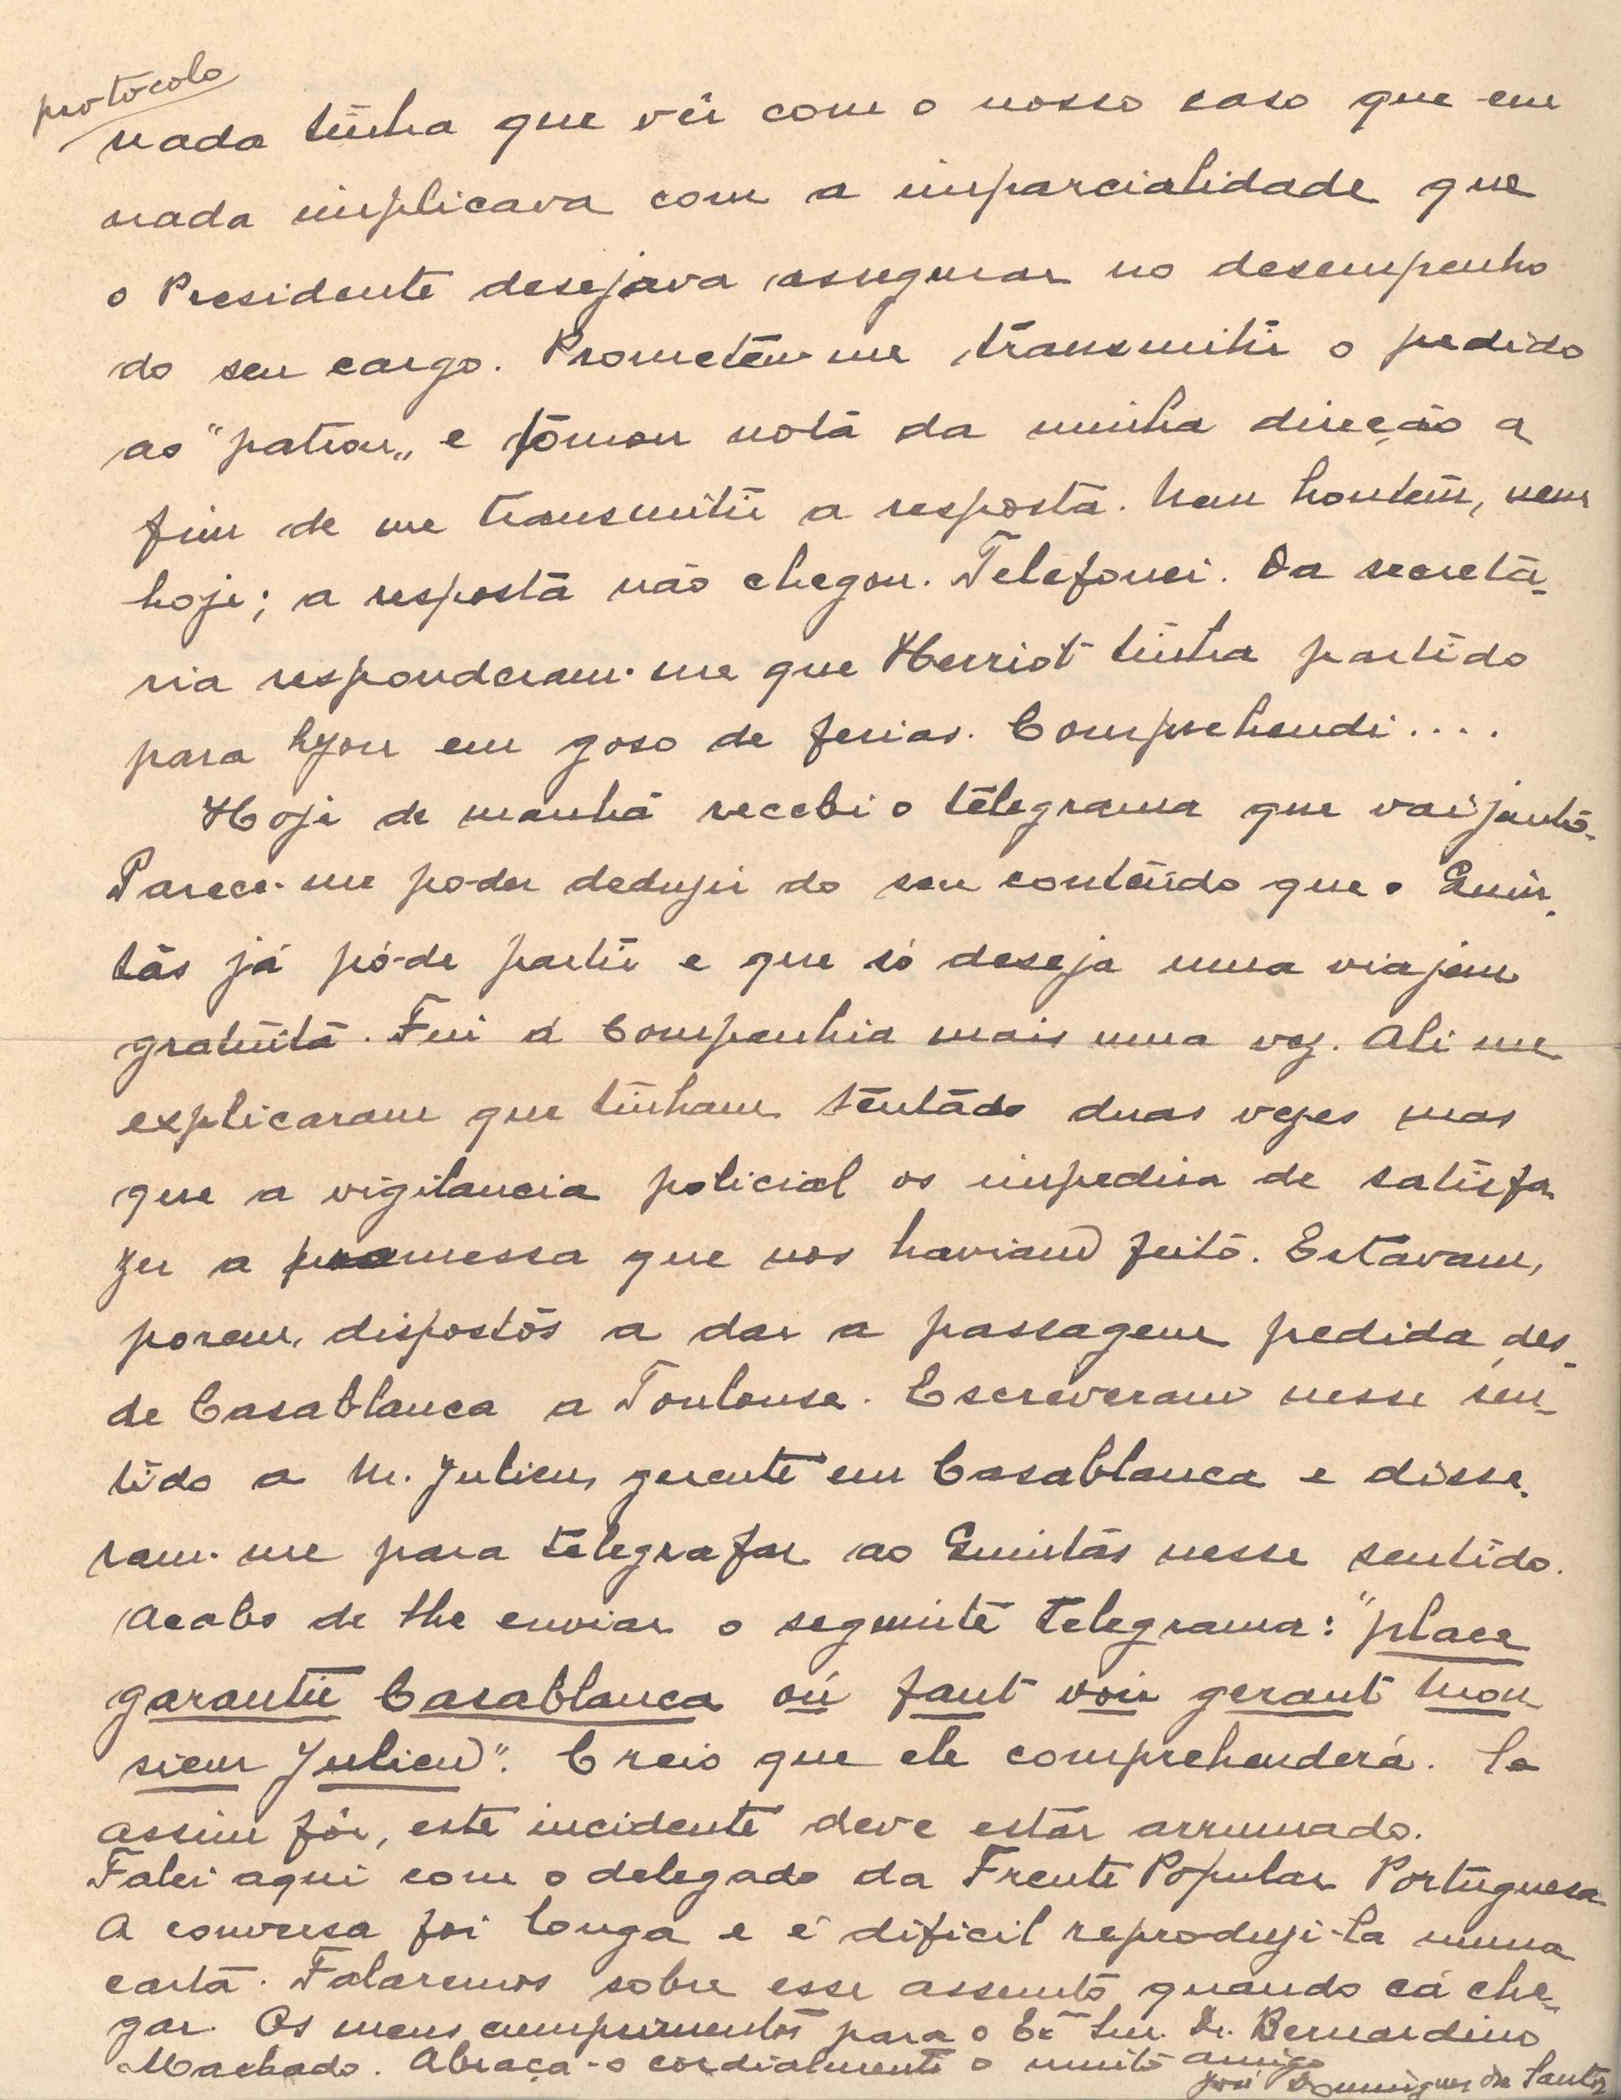 protocolo
nada tinha que vêr com o nosso caso que em
nada implicava com a imparcialidade que
o Presidente desejava assegurar no desempenho
do seu cargo. Prometeu-me transmitir o pedido
ao "patron„ e tômou nota da minha direção a
fim de me transmitir a resposta. Nem hontem, nem
hoje; a resposta não chegou. Telefonei. Da secretá-
ria responderam-me que Herriot tinha partido
para Lyon em goso de ferias. Comprehendi....
Hoje de manhã recebi o telegrama que vai junto.
Parece-me poder deduzir do seu conteúdo que o Quin-
tas já pó-de partir e que só deseja uma viajem
gratuita. Fui á Companhia mais uma vez. Ali me
explicaram que tinham tentado duas vezes mas
que a vigilancia policial os impedira de satisfa-
zer a promessa que nos haviam feito. Estavam,
porem, dispostos a dar a passagem pedida des-
de Casablanca a Toulouse. Escreveram nesse sen-
tido a M. Julien, gerente em Casablanca e disse-
ram-me para telegrafar ao Quintas nesse sentido.
Acabo de lhe enviar o seguinte telegrama: "place
garantie Casablanca oú faut voir gerant Mon
sieur Julien". Creio que ele comprehenderá. Se
assim fôr, este incidente deve estar arrumado.
Falei aqui com o delegado da Frente Popular Portuguesa
A conversa foi longa e é dificil reproduzi-la numa
carta. Falaremos sobre esse assunto quando cá che-
gar. Os meus cumprimentos para o Exº Snr. Dr. Bernardino
Machado. Abraça-o cordialmente o muito amigo
José Domingues dos Santos